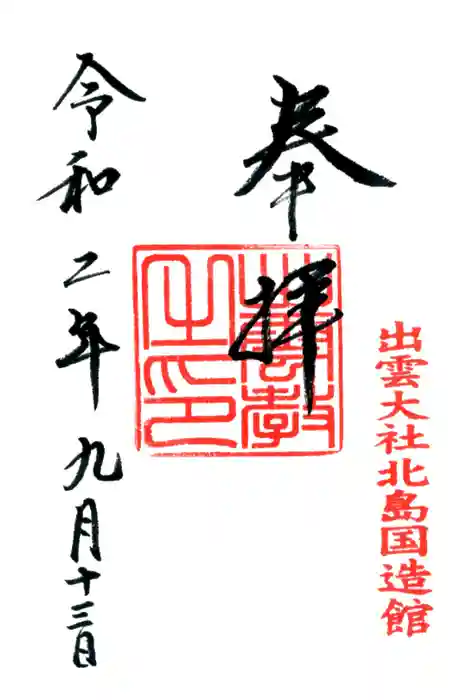 出雲大社北島国造館
奉拝
出雲教
之印
令和二年九月十三日